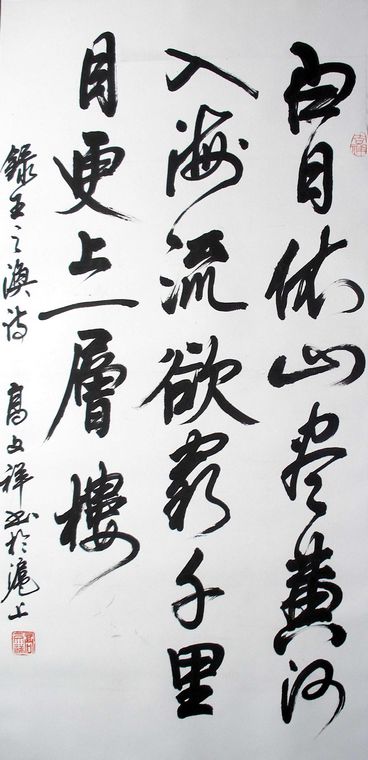 白日依山尽黄河
入海流欲穷千里
目更上一層樓
錄王之渙诗 高文祥书於滬上